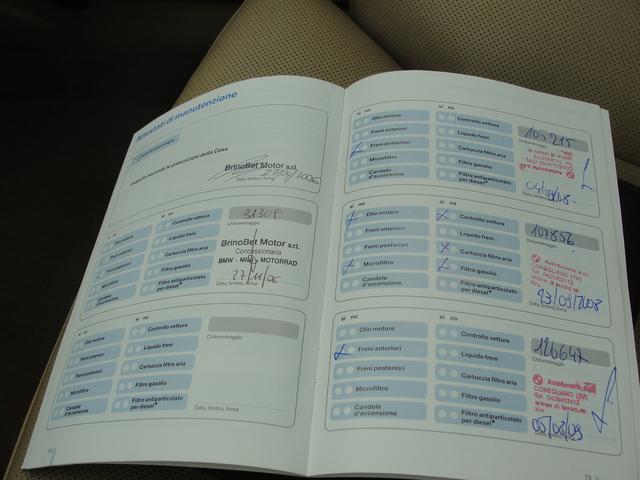 Attestati di manutenzione
eseguito secondo le prescrizioni della Casa
BrinoBet Motor s.r.l.
27/04/2006
Data, timbro, firma
si no
Olio motore
Freni anteriori
Freni posteriori
Microfiltro
Candele d'accensione
Controllo vettura
Liquido freni
Cartuccia filtro aria
Filtro gasolio
Filtro antiparticolato
per diesel*
Chilometraggio
BrinoBet Motor s.r.l.
Concessionaria
BMW - MINI - MOTORRAD
27/11/06
Data, timbro, firma
si no
Olio motore
Freni anteriori
Freni posteriori
Microfiltro
Candele
d'accensione
Controllo vettura
Liquido freni
Cartuccia filtro aria
Filtro gasolio
Filtro antiparticolato
per diesel*
Chilometraggio
Data, timbro, firma
si no
Olio motore
Freni anteriori
Freni posteriori
Microfiltro
Candele
d'accensione
si no
Controllo vettura
Liquido freni
Cartuccia filtro aria
Filtro gasolio
Filtro antiparticolato
per diesel*
Chilometraggio
Data, timbro, firma
si no
Olio motore
Freni anteriori
Freni posteriori
Microfiltro
Candele
d'accensione
si no
Controllo vettura
Liquido freni
Cartuccia filtro aria
Filtro gasolio
Filtro antiparticolato
per diesel*
107856
Chilometraggio
CONEGLIANO (TV)
23/09/2008
Data, timbro, firma
si no
Olio motore
Freni anteriori
Freni posteriori
Microfiltro
Candele
d'accensione
si no
Controllo vettura
Liquido freni
Cartuccia filtro aria
Filtro gasolio
Filtro antiparticolato
per diesel*
126647
Chilometraggio
CONEGLIANO (TV)
05/08/09